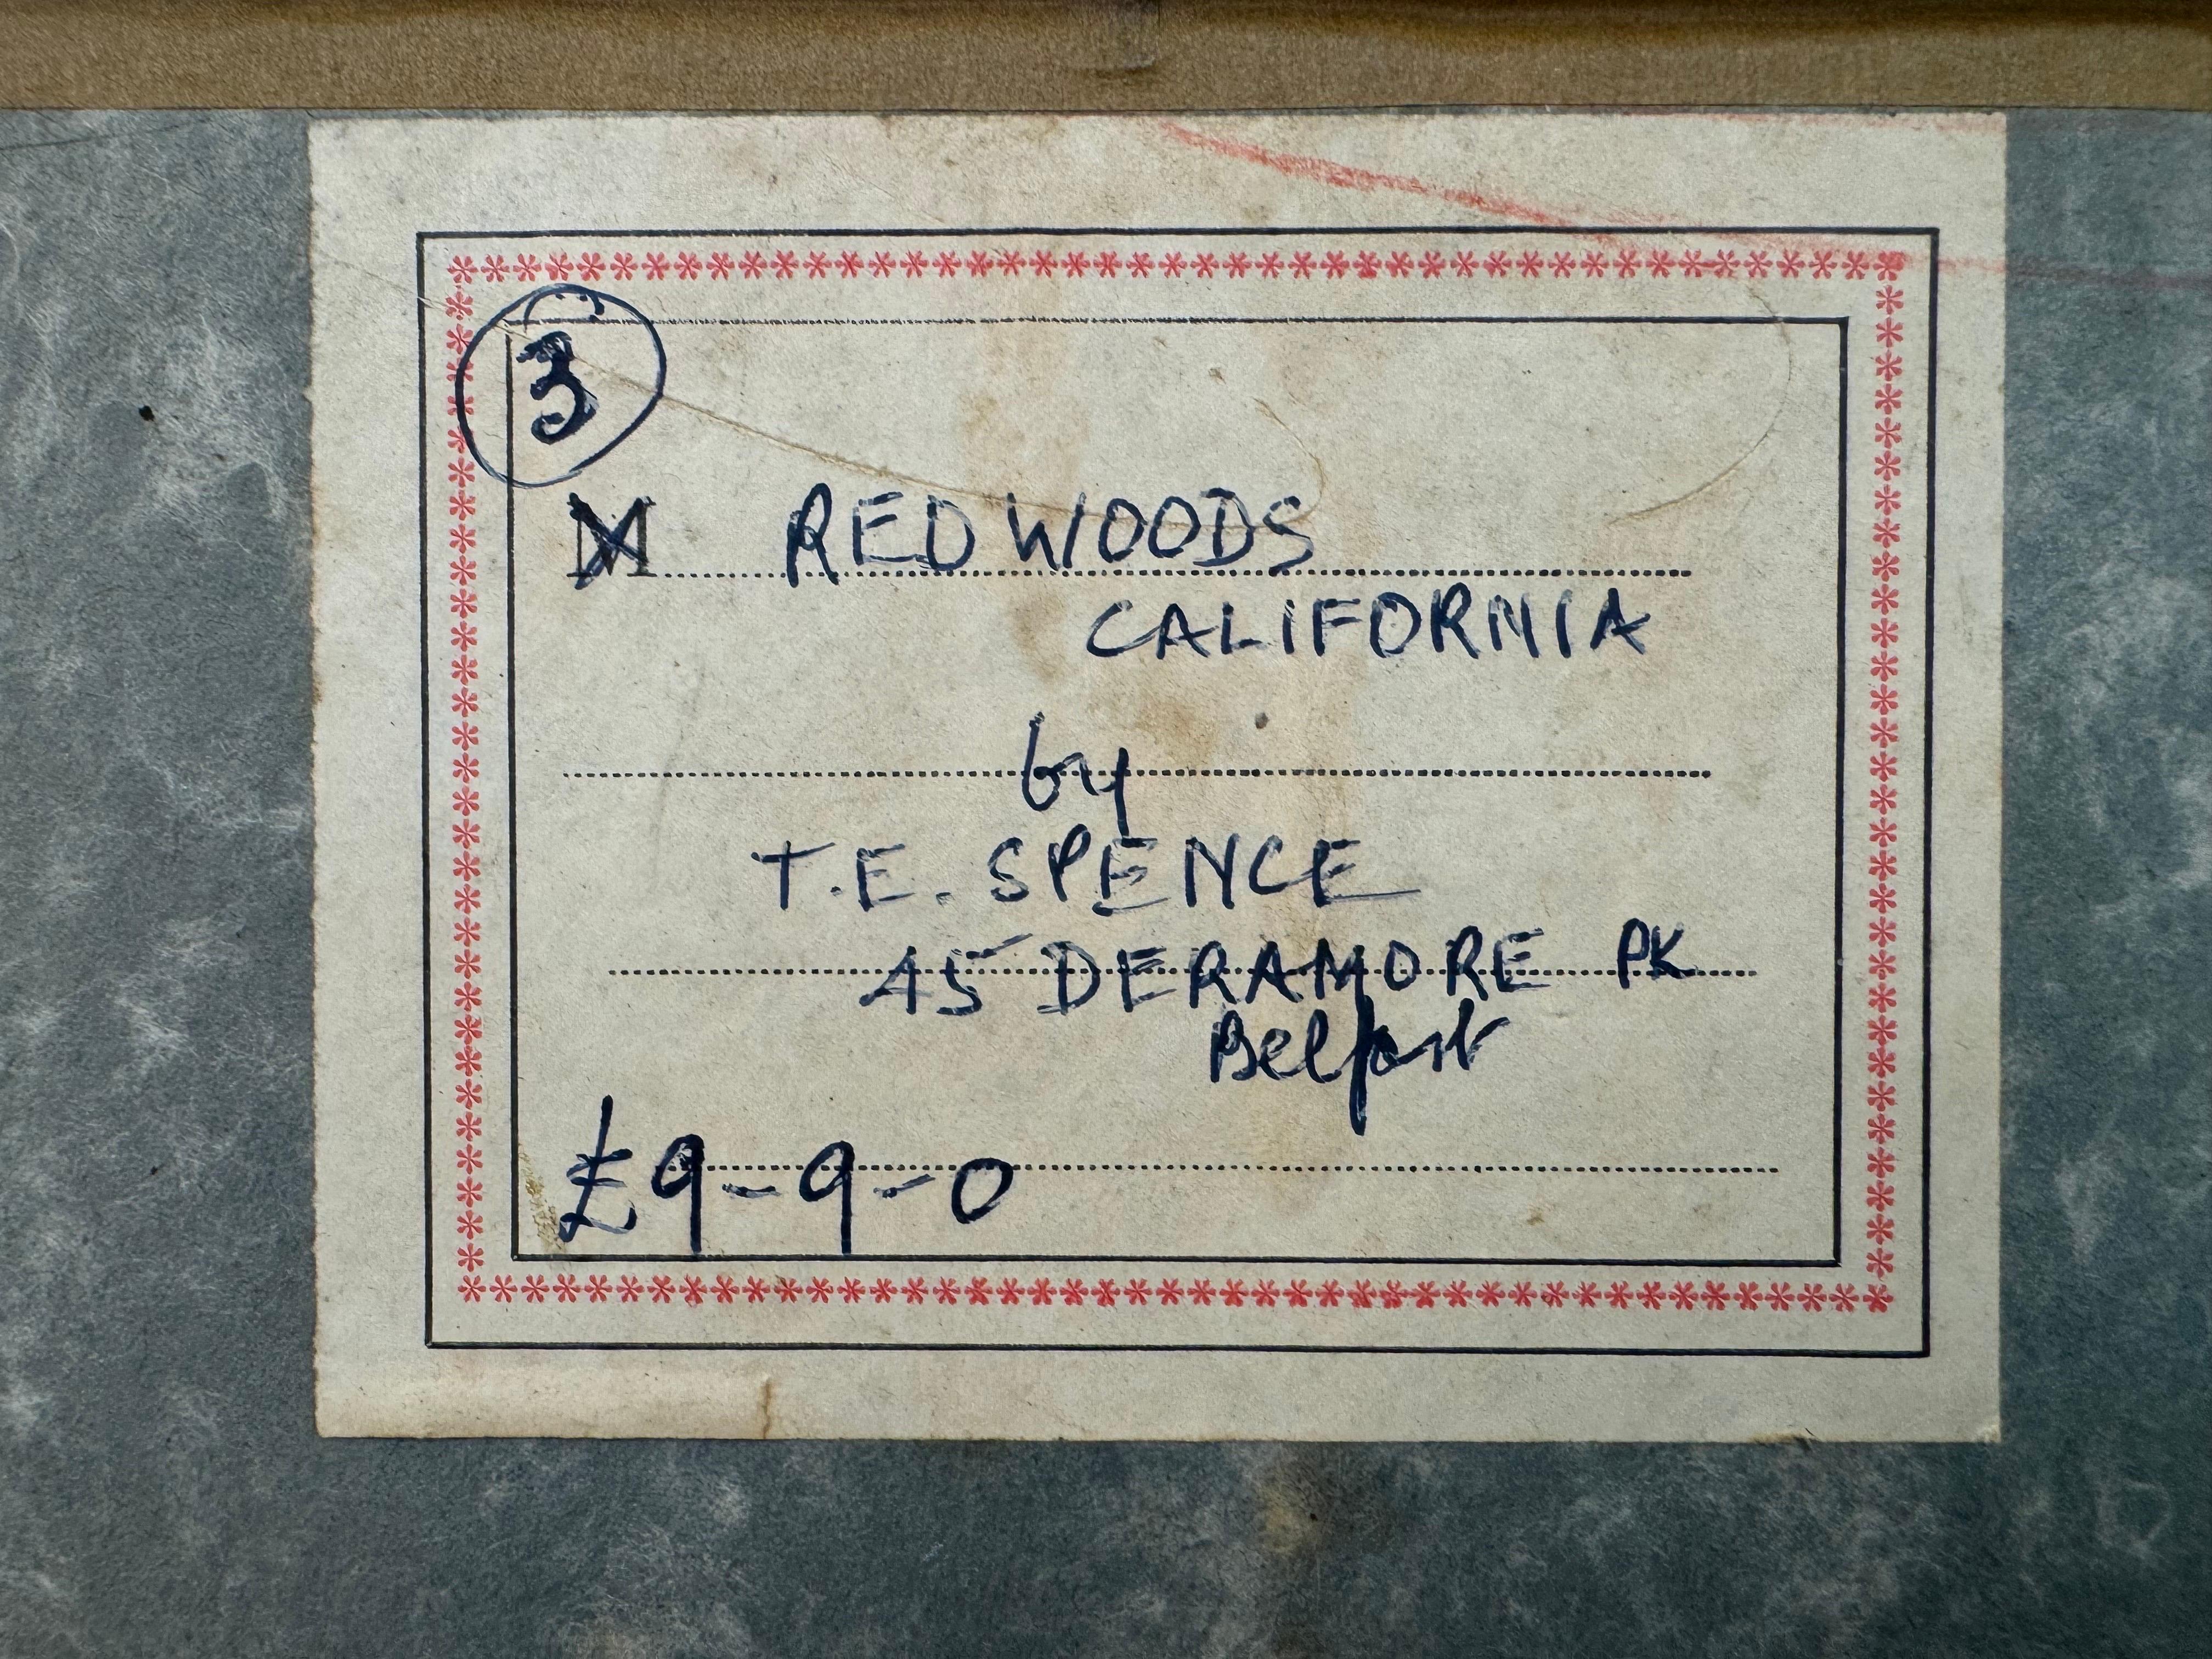 3
M REDWOODS
CALIFORNIA
by
T.E. SPENCE
45 DERAMORE PK
Belfast
£9-9-0